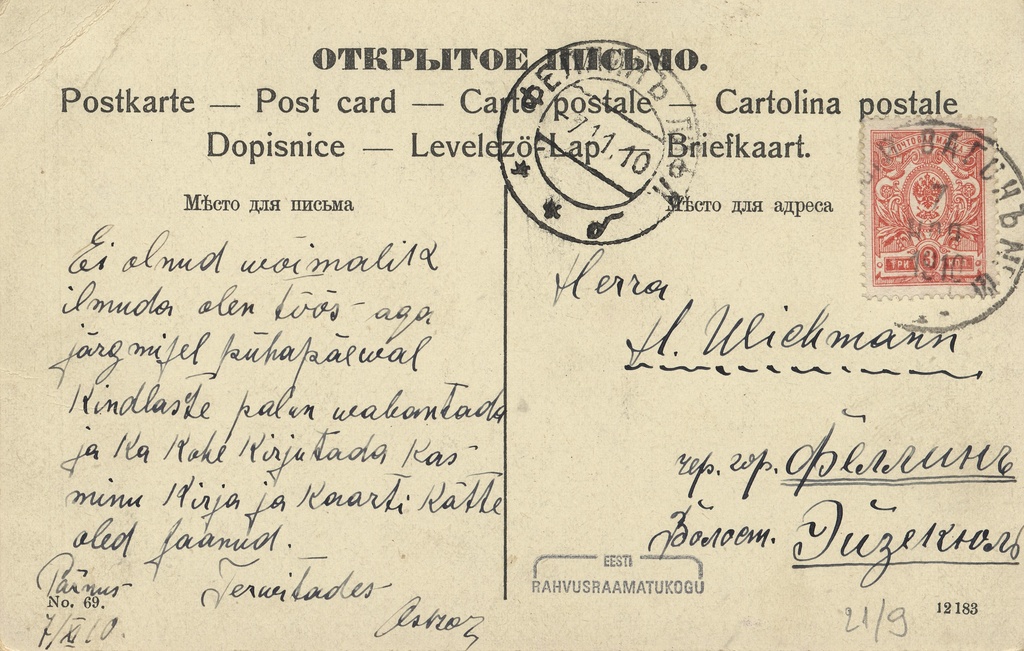 ОТКРЫТОЕ ПИСЬМО.
Postkarte — Post card — Carte postale — Cartolina postale
Dopisnice — Levelező-Lap — Briefkaart.
Мѣсто для письма
Мѣсто для адреса
Ei olnud wõimalik
ilmuda olen töös aga
järgmisel pühapäewal
Kindlaste palun wabantada
ja Ka Kohe Kirjutada Kas
minu Kirja ja Kaarti Kätte
oled saanud.
Terwitades
Oskar
Pärnus
7/XI 10.
No. 69.
Herra
H. Wichmann
чер. гор. Феллинъ
Волост. Эйзекюль
ФЕЛЛИНЪ ЛИФЛ.
7.11.10
ВАГОНЪ
ТРИ 3 КОП
EESTI
RAHVUSRAAMATUKOGU
21/9
12183